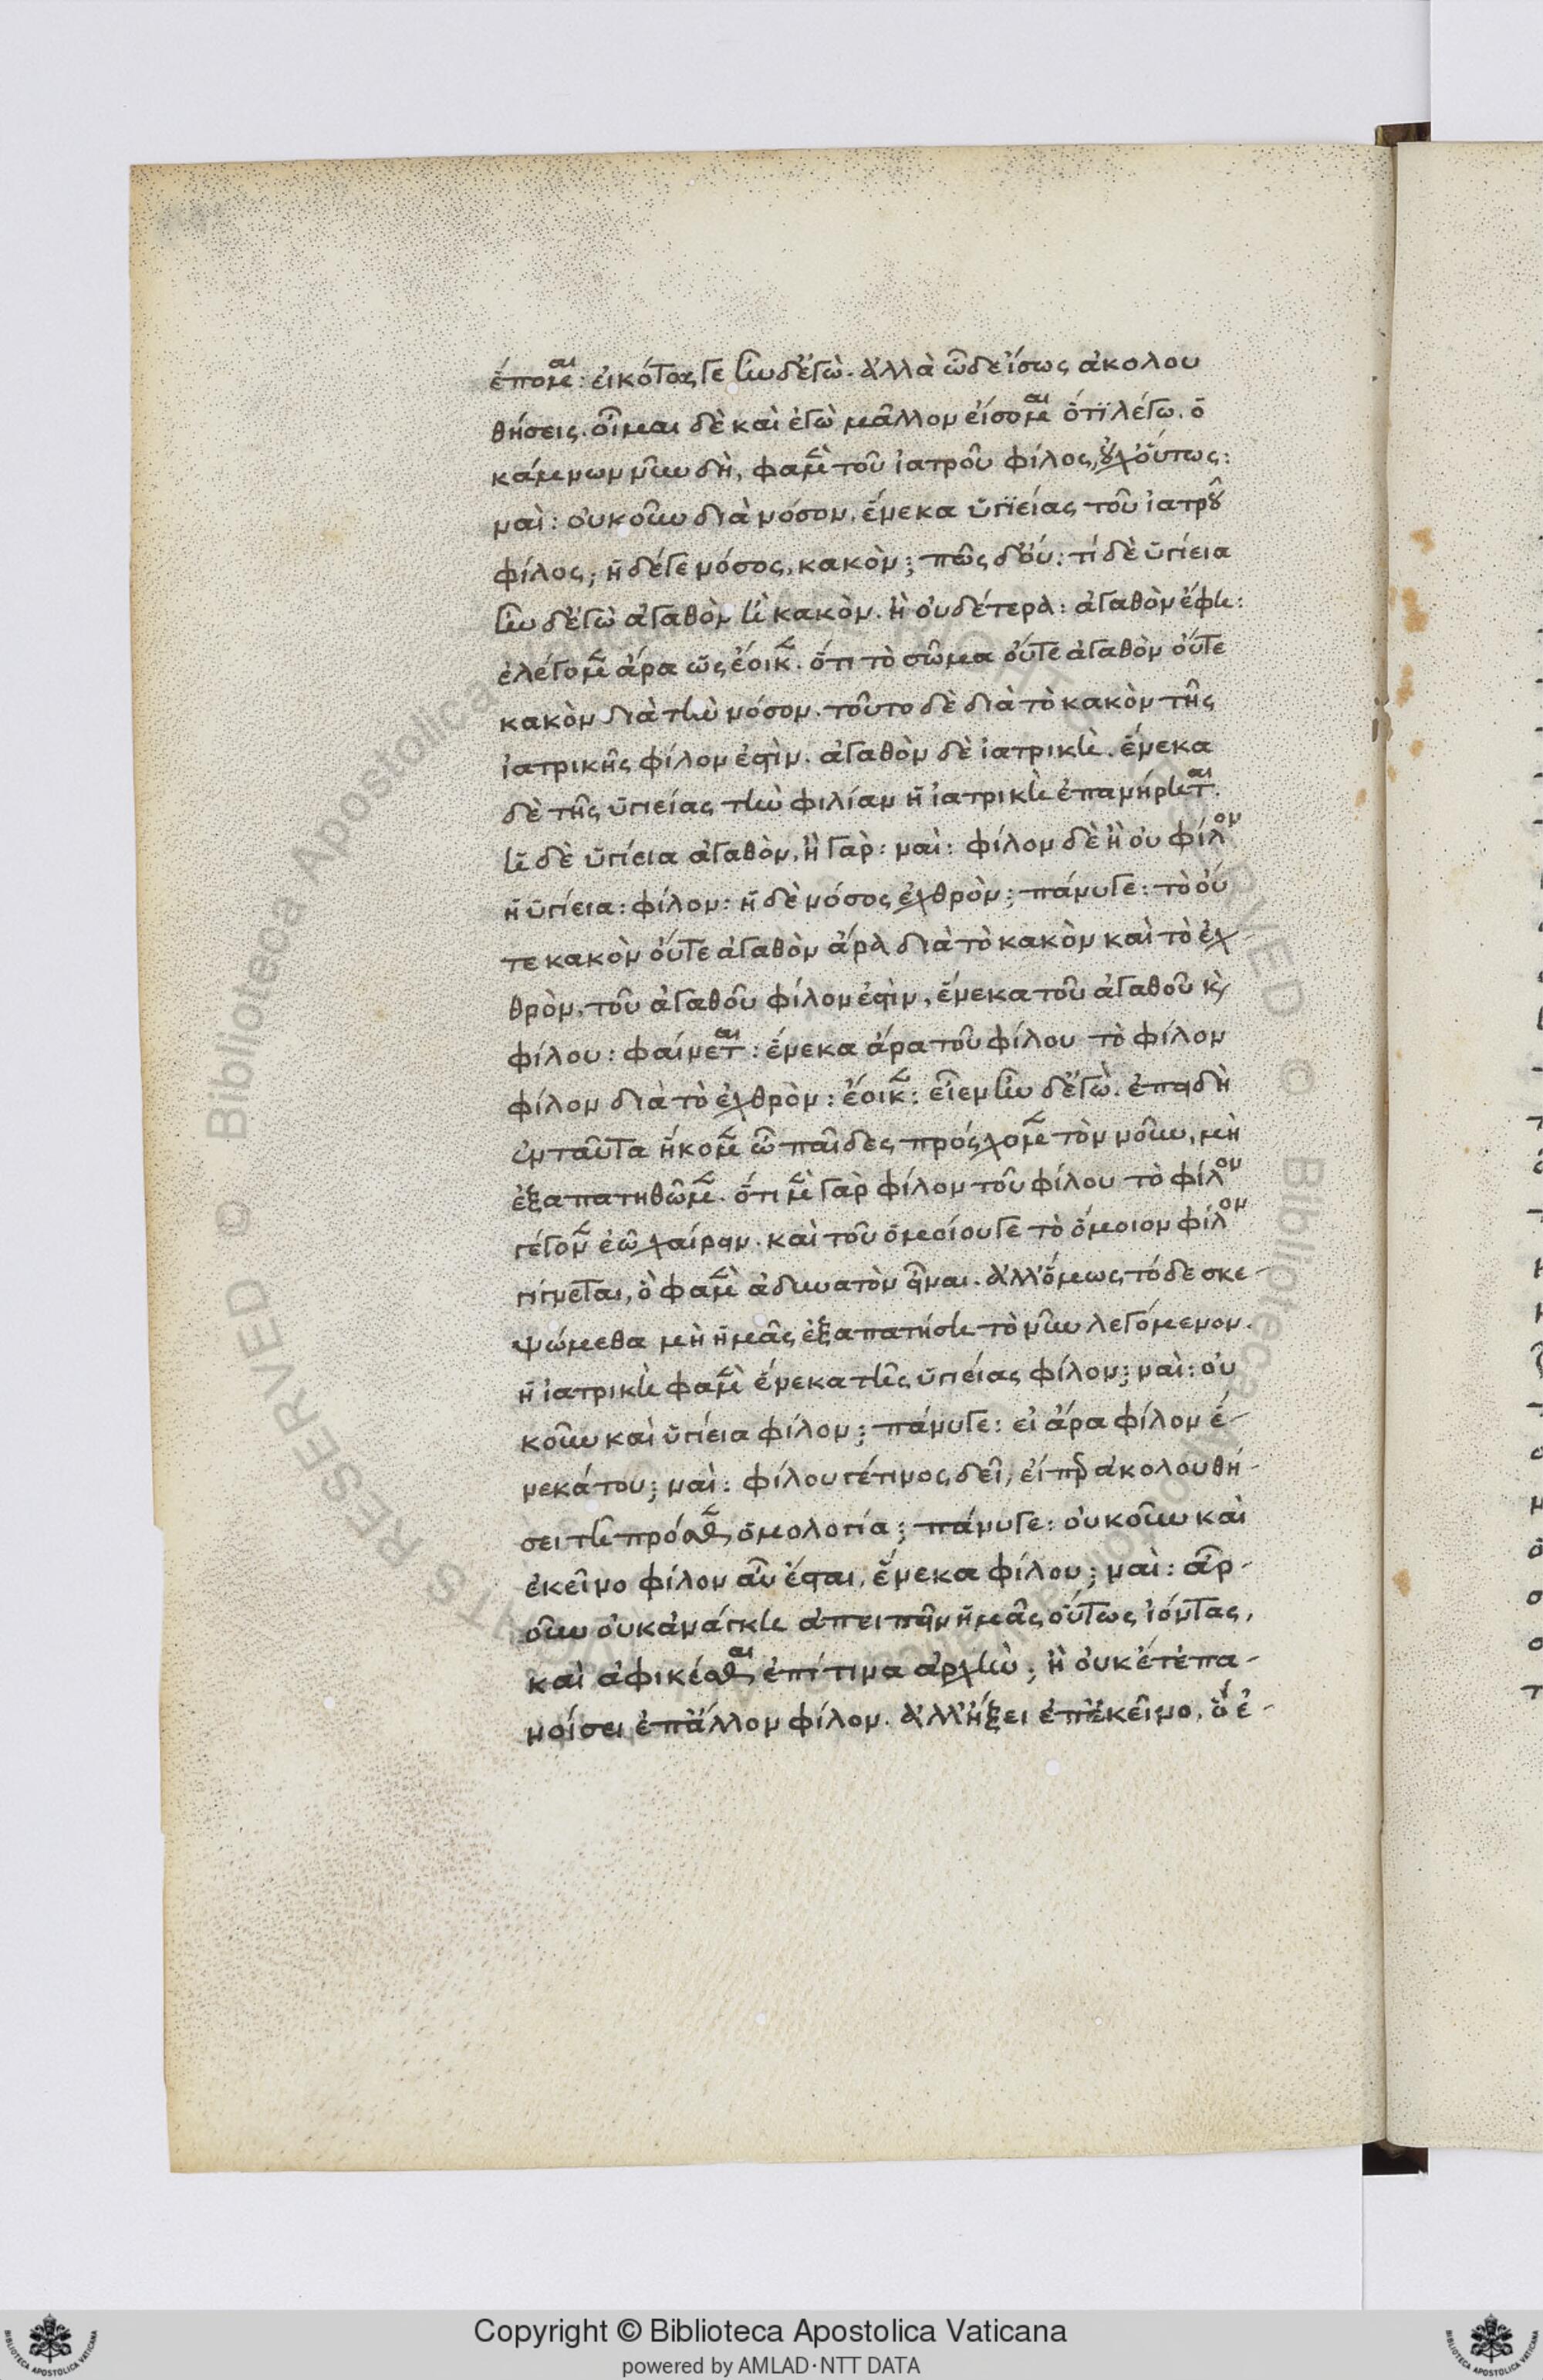 ἕπομαι: εἰκότως γε ἦν δ' ἐγώ. ἀλλὰ ὧδε ἴσως ἀκολου
θήσεις. οἶμαι δὲ καὶ ἐγὼ μᾶλλον εἴσομαι ὅτι λέγω. ὁ
κάμνων νῦν δὴ, φαμὲν τοῦ ἰατροῦ φίλος, οὐχ οὕτως:
ναὶ: οὐκοῦν διὰ νόσον, ἕνεκα ὑγιείας τοῦ ἰατροῦ
φίλος; ἡ δέ γε νόσος, κακὸν; πῶς δ' οὔ: τί δὲ ὑγίεια
ἦν δ' ἐγὼ ἀγαθὸν ἢ κακὸν. ἢ οὐδέτερα: ἀγαθὸν ἔφη:
ἐλέγομεν ἄρα ὡς ἔοικεν. ὅτι τὸ σῶμα οὔτε ἀγαθὸν οὔτε
κακὸν διὰ τὴν νόσον. τοῦτο δὲ διὰ τὸ κακὸν τῆς
ἰατρικῆς φίλον ἐστὶν. ἀγαθὸν δὲ ἰατρικὴ. ἕνεκα
δὲ τῆς ὑγιείας τὴν φιλίαν ἡ ἰατρικὴ ἐπανήρηται.
ἡ δὲ ὑγίεια ἀγαθὸν, ἦ γὰρ: ναὶ: φίλον δὲ ἢ οὐ φίλον
ἡ ὑγίεια: φίλον: ἡ δὲ νόσος ἐχθρὸν; πάνυ γε: τὸ οὔ
τε κακὸν οὔτε ἀγαθὸν ἄρα διὰ τὸ κακὸν καὶ τὸ ἐχ
θρὸν. τοῦ ἀγαθοῦ φίλον ἐστὶν, ἕνεκα τοῦ ἀγαθοῦ καὶ
φίλου: φαίνεται: ἕνεκα ἄρα τοῦ φίλου τὸ φίλον
φίλον διὰ τὸ ἐχθρὸν: ἔοικεν: εἶεν ἦν δ' ἐγὼ. ἐπειδὴ
ἐνταῦθα ἥκομεν ὦ παῖδες πρόσχομεν τὸν νοῦν, μὴ
ἐξαπατηθῶμεν. ὅτι μὲν γὰρ φίλον τοῦ φίλου τὸ φίλον
γέγονεν ἐῶ χαίρειν. καὶ τοῦ ὁμοίου γε τὸ ὅμοιον φίλον
γίγνεται, ὅ φαμὲν ἀδύνατον εἶναι. ἀλλ' ὅμως τόδε σκε-
ψώμεθα μὴ ἡμᾶς ἐξαπατήσῃ τὸ νῦν λεγόμενον.
ἡ ἰατρικὴ φαμὲν ἕνεκα τῆς ὑγιείας φίλον; ναὶ: οὐ
κοῦν καὶ ὑγίεια φίλον; πάνυ γε: εἰ ἄρα φίλον ἕ-
νεκά του; ναὶ: φίλου γέ τινος δεῖ, εἴπερ ἀκολουθή-
σει τῇ πρόσθεν ὁμολογία; πάνυ γε: οὐκοῦν καὶ
ἐκεῖνο φίλον αὖ ἔσται, ἕνεκα φίλου; ναὶ: ἆρ-
οὖν οὐκ ἀνάγκη ἀπειπεῖν ἡμᾶς οὕτως ἰόντας,
καὶ ἀφικέσθαι ἐπί τινα ἀρχὴν; ἢ οὐκέτ' ἐπα-
νοίσει ἐπ' ἄλλον φίλον. ἀλλ' ἥξει ἐπ' ἐκεῖνο, ὅ ἐ-
Copyright © Biblioteca Apostolica Vaticana
powered by AMLAD·NTT DATA